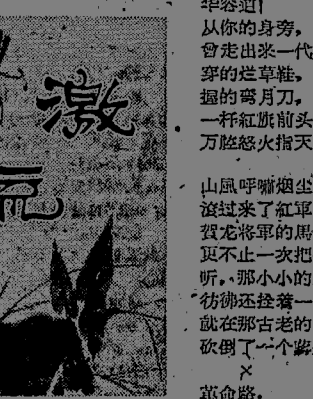 激
流
华容道!
从你的身旁,
曾走出来一代
穿的烂草鞋,
握的弯月刀,
一杆紅旗前头
万腔怒火指天
山風呼啸烟尘
滾过来了紅軍
賀龙将軍的馬
更不止一次把
听,那小小的
彷彿还拴着一
就在那古老的
砍倒了一个
×
革命路,